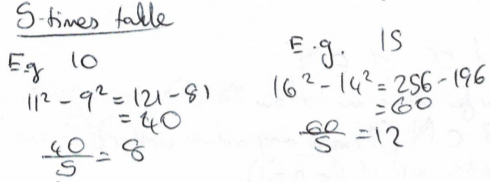 5-times table
E.g 10
11² - 9² = 121 - 81
= 40
40/5 = 8
E.g. 15
16² - 14² = 256 - 196
= 60
60/5 = 12